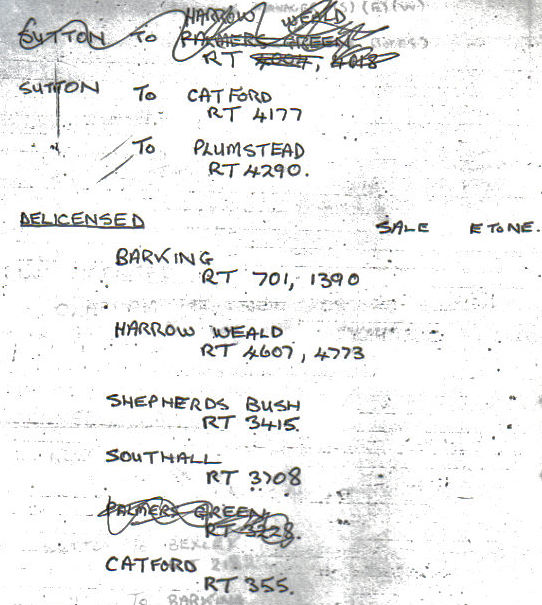 HARROW WEALD
SUTTON TO PALMERS GREEN
RT 4004, 4018
SUTTON TO CATFORD
RT 4177
TO PLUMSTEAD
RT 4290.
DELICENSED SALE ETONE.
BARKING
RT 701, 1390
HARROW WEALD
RT 4607, 4773
SHEPHERDS BUSH
RT 3415.
SOUTHALL
RT 3708
PALMERS GREEN
RT 3228.
BEXLEY
CATFORD
RT 355.
TO BARKING